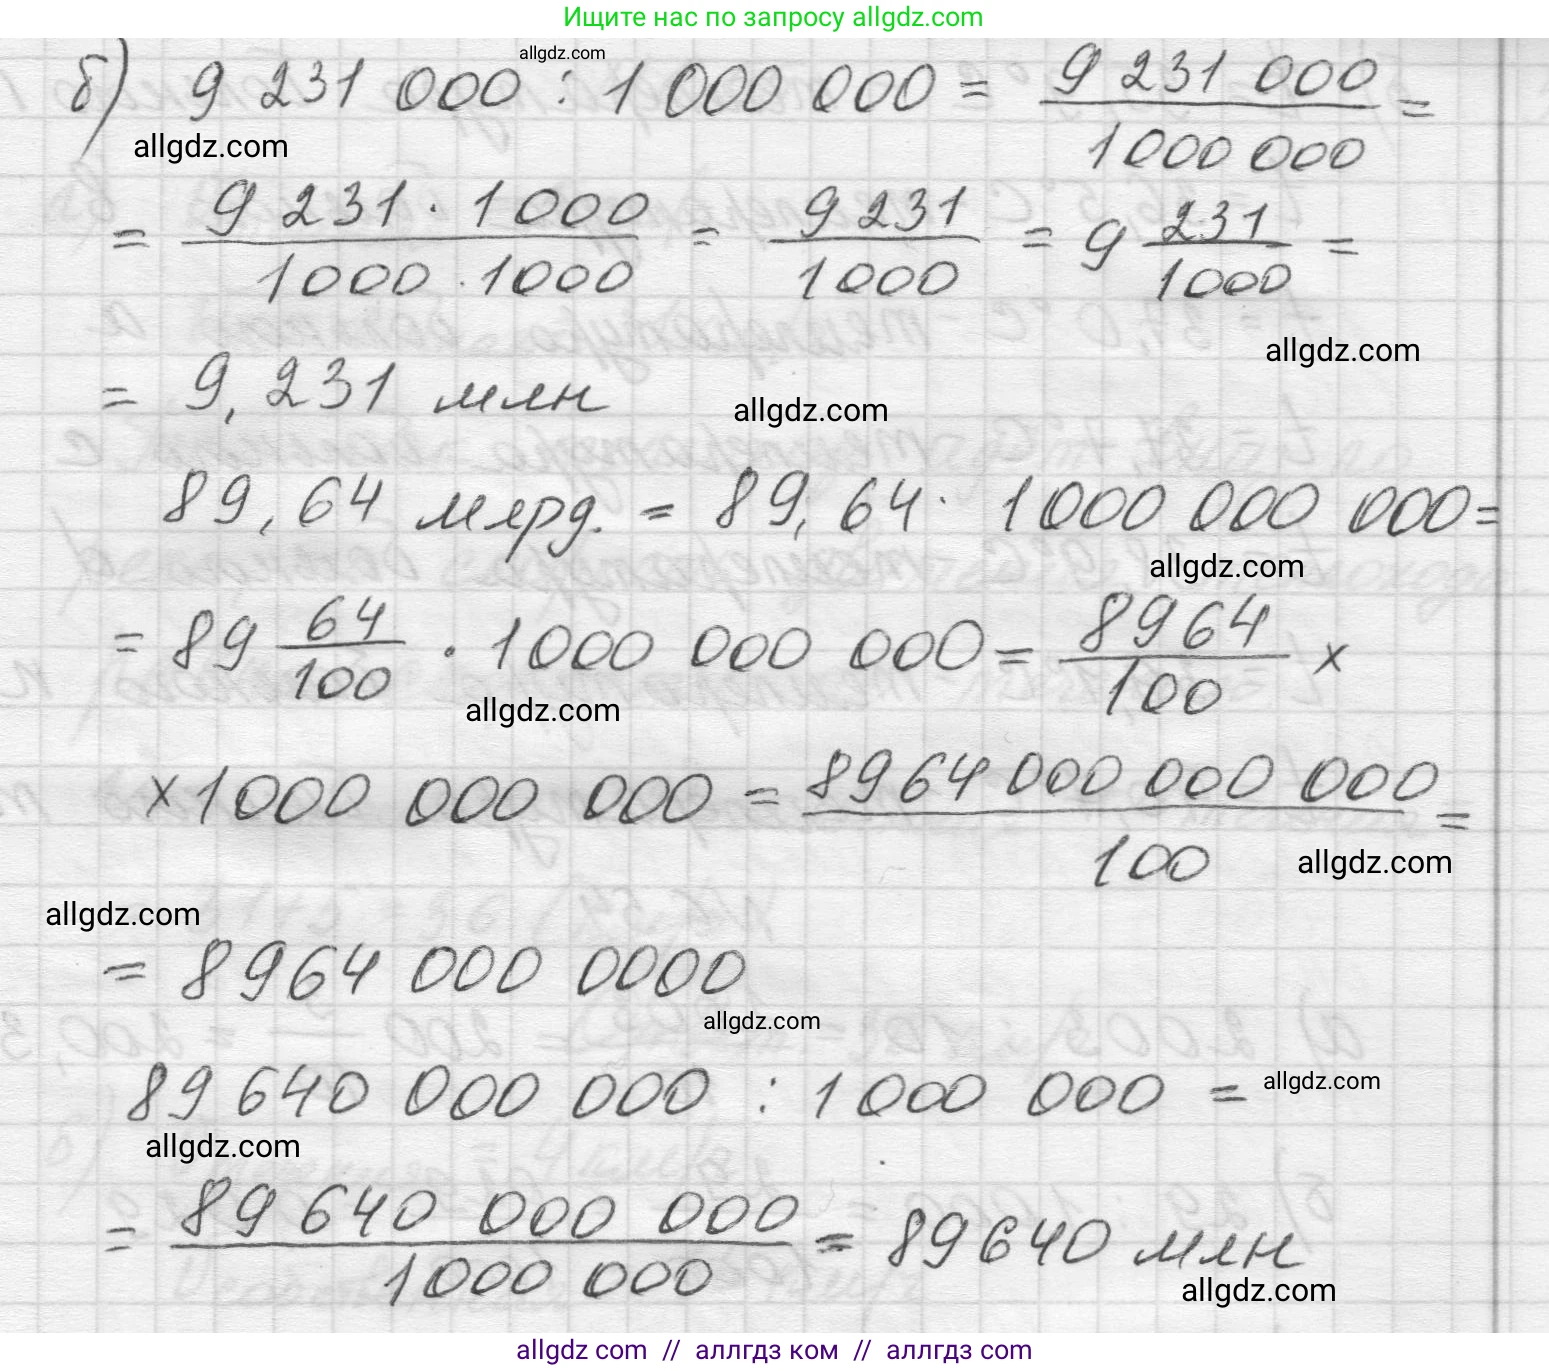 Ищите нас по запросу allgdz.com
allgdz.com
б) 9 231 000 : 1 000 000 = 9 231 000 / 1 000 000 =
allgdz.com
= 9 231 · 1000 / 1000 · 1000 = 9 231 / 1000 = 9 231/1000 =
allgdz.com
= 9,231 млн
allgdz.com
89,64 млрд. = 89,64 · 1 000 000 000 =
allgdz.com
= 89 64/100 · 1 000 000 000 = 8964 / 100 ×
allgdz.com
× 1 000 000 000 = 8964 000 000 000 / 100 =
allgdz.com
allgdz.com
= 8964 000 0000
allgdz.com
89 640 000 000 : 1 000 000 =
allgdz.com
allgdz.com
= 89 640 000 000 / 1 000 000 = 89640 млн
allgdz.com
allgdz com // аллгдз ком // аллгдз com